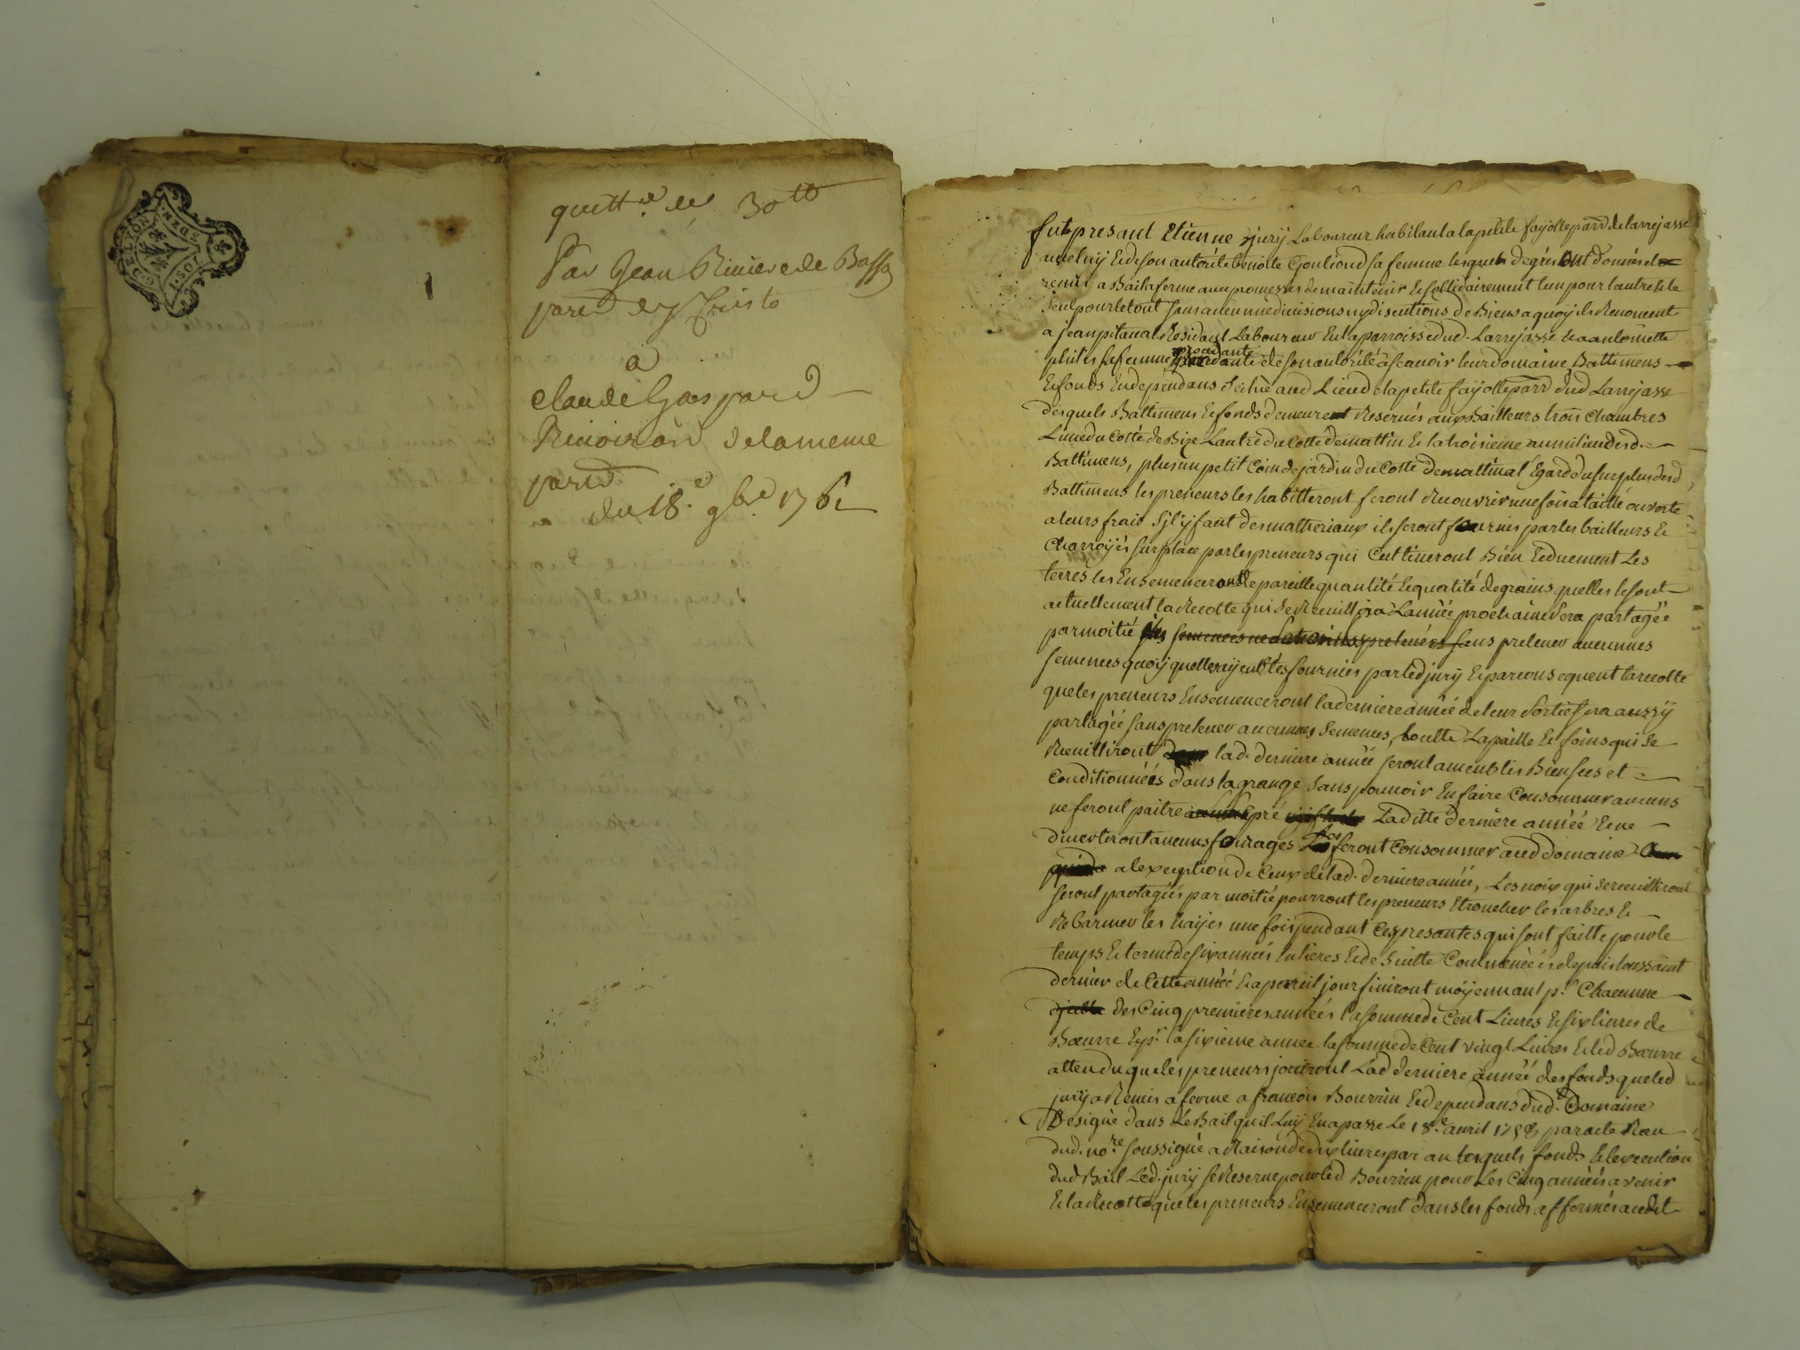 GEN. DE LYON
quitt.ce de 30 tt
Par Jean Riviere de Bassa
parr. de
a
claude Gaspard
de la meme
parr.
du 18.e 9bre 1762
fut present Etienne jurÿ Laboureur habitant a la petite faÿolle parr. de larrejasse
avec luÿ Et de son autorité benoitte Goutiond sa femme lesquels de gré ont donnés et
remis a Bail a ferme avec promesses de maintenir Et sollidairement l'un pour l'autre Et le
seul pour le tout sans aucunne divisions nÿ discutions de Biens a quoÿ ils Renoncent
a jean pitaval Residant Laboureur En la parroisse dud. Larrejasse Et a antoinette
sa femme procedante de son autorité a scavoir leur domaine, Battimens
Et fonds En dependans scitué aud. Lieu de la petite faÿolle parr. dud. Larrejasse
desquels Battimens Et fonds demeurent Reservés aux Bailleurs trois Chambres
L'une du Cotté de Bize L'autre du Cotté de mattin Et la troisieme au milieu desd.
Battimens, plus un petit Coin de jardin du Cotté de mattin a l'Egard du surplus desd.
Battimens les preneurs les habitteront feront Recouvrir une fois a taille ouverte
a leurs frais s'jl ÿ faut des matteriaux ils seront fournis par les bailleurs Et
Charroÿés sur place par les preneurs qui Cultiveront Bien Et duement Les
terres les Ensemenceront de pareille quantité Et qualité de grains quelles le sont
actuellement la Recolte qui se Reuillira L'année prochaine sera partagée
par moitié sans prelever aucunnes
semences quoÿ quelles aÿent étés fournies par led. jurÿ Et par consequent la recolte
que les preneurs Ensemenceront la derniere année de leur sortie sera aussÿ
partagée sans prelever aucunnes semences, toutte La paille Et foins qui se
Reuilliront lad. derniere année seront ameublés Bien secs et
Conditionnées dans la grange sans pouvoir En faire Consommer aucuns
ne feront paitre pré Laditte derniere année Et ne
divertiront aucuns fourages Les feront Consommer aud. domaine
a l'exception de Ceux de lad. derniere année, Les noix qui se reuilliront
seront partagées par moitié pourront les preneurs Etroncher les arbres Et
Rebarmer les haÿes une fois pendant Ces presantes qui sont faitte pour le
temps Et terme de six années Entieres Et de suitte Commencées depuis toussaint
dernier de Cette année Et a pareil jour finiront moÿennant p.r Chacunne
des Cinq premieres années la somme de Cent Livres Et six livres de
Bœurre Et p.r la sixieme année la somme de Cent vingt Livres Et led. Bœurre
attendu que les preneurs jouiront Lad. derniere année des fonds que led.
jurÿ a Remis a ferme a francois Bourrin Et dependans dud. Domaine
Designé dans Le Bail qu'il Luÿ En a passé Le 18.e avril 1758 par acte Recu
dud. no.re soussigné a Raison de dix livres par an lesquels fonds Et l'execution
dud. Bail Led. jurÿ se Reserve pour led. Bourrin pour Les Cinq années a venir
Et la Recolte que les preneurs Ensemenceront dans les fonds affermés audit